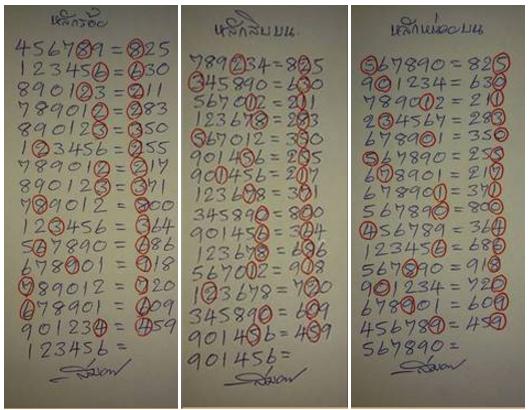 หลักร้อย
456789 = 825
123456 = 630
890123 = 211
789012 = 283
890123 = 350
123456 = 255
789012 = 217
890123 = 371
789012 = 800
123456 = 364
567890 = 686
678901 = 918
789012 = 720
678901 = 609
901234 = 459
123456 =
หลักสิบบน
789234 = 825
345890 = 630
567012 = 211
123678 = 283
567012 = 350
901456 = 255
901456 = 217
123678 = 371
345890 = 800
901456 = 364
123678 = 686
567012 = 918
123678 = 720
345890 = 609
901456 = 459
901456 =
หลักหน่วยบน
567890 = 825
901234 = 630
789012 = 211
234567 = 283
678901 = 350
567890 = 255
678901 = 217
678901 = 371
567890 = 800
456789 = 364
123456 = 686
567890 = 918
901234 = 720
678901 = 609
456789 = 459
567890 =